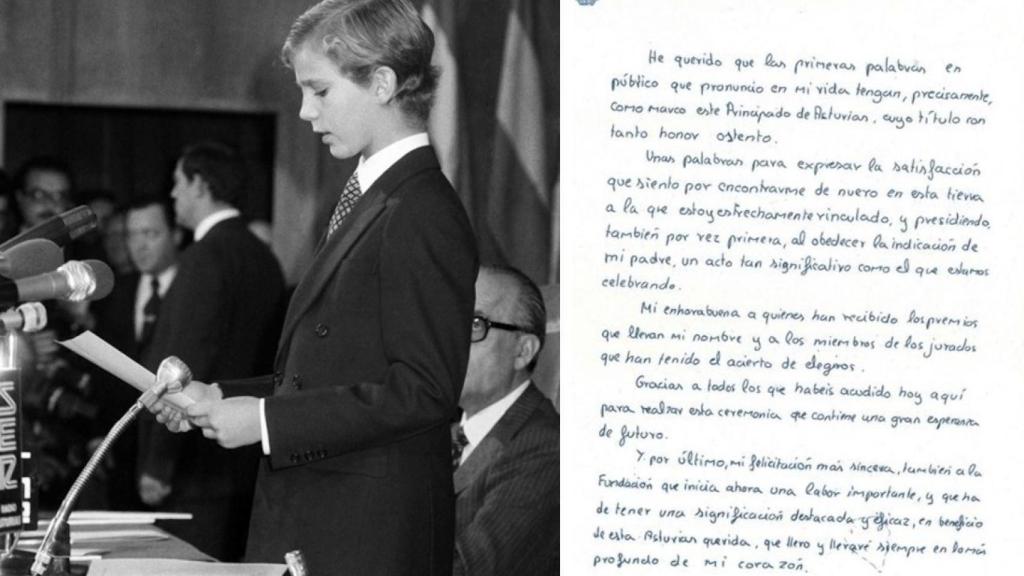 SER
He querido que las primeras palabras en
público que pronuncio en mi vida tengan, precisamente,
como marco este Principado de Asturias, cuyo título con
tanto honor ostento.
Unas palabras para expresar la satisfacción
que siento por encontrarme de nuevo en esta tierra
a la que estoy estrechamente vinculado, y presidiendo,
también por vez primera, al obedecer la indicación de
mi padre, un acto tan significativo como el que estamos
celebrando.
Mi enhorabuena a quienes han recibido los premios
que llevan mi nombre y a los miembros de los jurados
que han tenido el acierto de elegiros.
Gracias a todos los que habeis acudido hoy aquí
para realzar esta ceremonia que contiene una gran esperanza
de futuro.
Y por último, mi felicitación mas sincera, también a la
Fundación que inicia ahora una labor importante, y que ha
de tener una significación destacada y eficaz, en beneficio
de esta Asturias querida, que llevo y llevaré siempre en lo más
profundo de mi corazón.